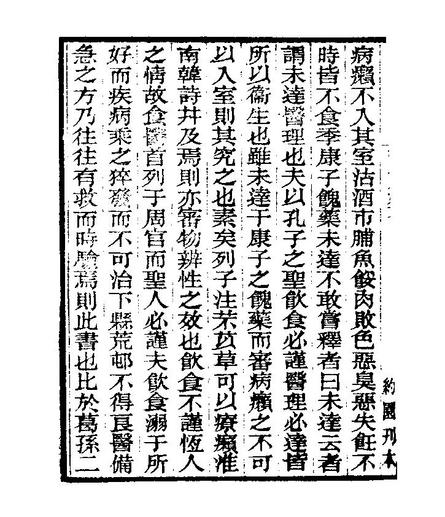 病癩不入其室沽酒市脯魚餒肉敗色惡臭惡失飪不
時皆不食季康子餽藥未達不敢嘗釋者曰未達云者
謂未達醫理也夫以孔子之聖飲食必謹醫理必達皆
所以衞生也雖未達于康子之餽藥而審病癩之不可
以入室則其究之也素矣列子注芣苡草可以療癩淮
南韓詩幷及焉則亦審物辨性之效也飲食不謹恆人
之情故食醫首列于周官而聖人必謹夫飲食溺于所
好而疾病乘之猝發而不可治下縣荒邨不得良醫備
急之方乃往往有救而時驗焉則此書也比於葛孫二
約園刊本